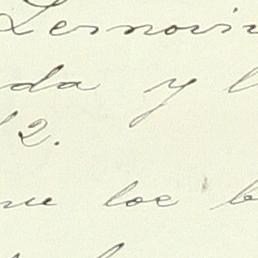 Lernovi
da y l
12.
ue los b